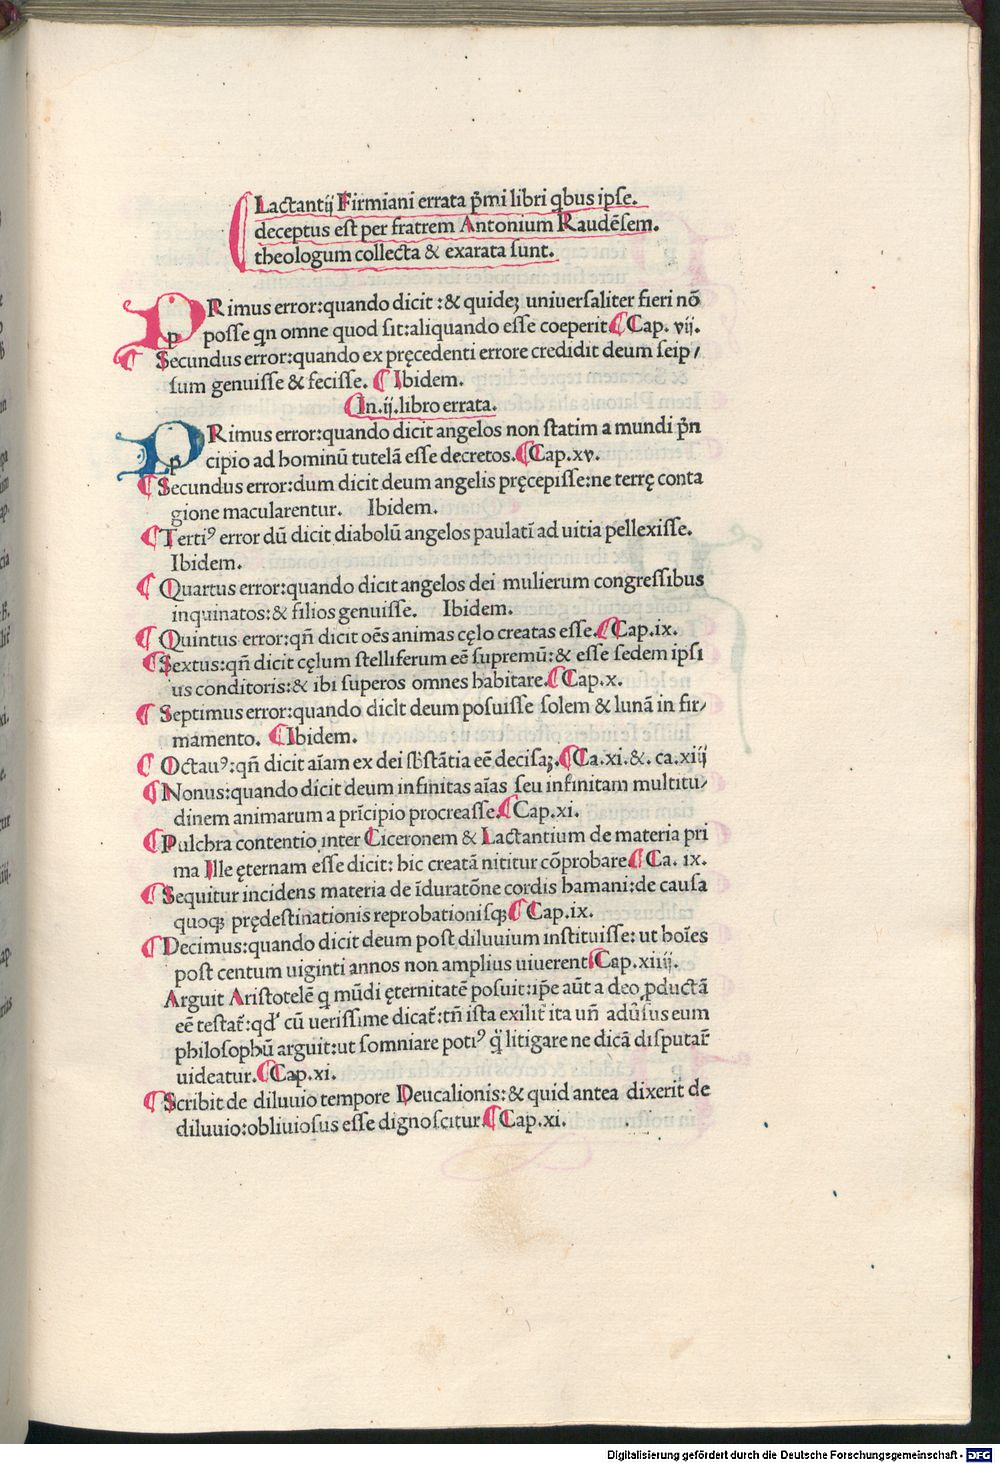 Lactantij Firmiani errata p̄mi libri qbus ipse.
deceptus est per fratrem Antonium Raudēsem.
theologum collecta & exarata sunt.
PRimus error:quando dicit :& quideʒ uniuersaliter fieri nō
posse qn omne quod sit:aliquando esse coeperit ¶Cap. vij.
¶ Secundus error:quando ex pręcedenti errore credidit deum seip/
sum genuisse & fecisse. ¶ Ibidem.
¶In.ij.libro errata.
PRimus error:quando dicit angelos non statim a mundi p̄n
cipio ad hominū tutelā esse decretos.¶Cap.xv.
¶ Secundus error:dum dicit deum angelis pręcepisse:ne terrę conta
gione macularentur. Ibidem.
¶Tertiꝰ error dū dicit diabolū angelos paulatī ad uitia pellexisse.
Ibidem.
¶ Quartus error:quando dicit angelos dei mulierum congressibus
inquinatos:& filios genuisse. Ibidem.
¶ Quintus error:qn̄ dicit oēs animas cęlo creatas esse.¶Cap.ix.
¶Sextus:qn̄ dicit cęlum stelliferum eē supremū:& esse sedem ipsi
us conditoris:& ibi superos omnes habitare.¶Cap.x.
¶ Septimus error:quando diclt deum posuisse solem & lunā in fir/
mamento. ¶Ibidem.
¶ Octauꝰ:qn̄ dicit aīam ex dei sb̄stātia eē decisaʒ.¶Ca.xi.&. ca.xiij
¶Nonus:quando dicit deum infinitas aīas seu infinitam multitu/
dinem animarum a prīcipio procreasse.¶Cap.xi.
¶Pulchra contentio inter Ciceronem & Lactantium de materia pri
ma Ille ęternam esse dicit: hic creatā nititur cōprobare¶Ca. ix.
¶Sequitur incidens materia de īduratōne cordis hamani:de causa
quoqꝫ prędestinationis reprobationisqꝫ¶Cap.ix.
¶Decimus:quando dicit deum post diluuium instituisse: ut hoīes
post centum uiginti annos non amplius uiuerent¶Cap.xiiij.
Arguit Aristotelē q mūdi ęternitatē posuit:ip̄e aūt a deo ꝓductā
eē testat̄:qd' cū uerissime dicat̄:tn̄ ista exilit ita un̄ adu̇sus eum
philosophū arguit:ut somniare potiꝰ q̈ litigare ne dicā disputar̄
uideatur.¶Cap.xi.
¶Scribit de diluuio tempore Deucalionis:& quid antea dixerit de
diluuio:obliuiosus esse dignoscitur¶Cap.xi.
Digitalisierung gefördert durch die Deutsche Forschungsgemeinschaft - DFG